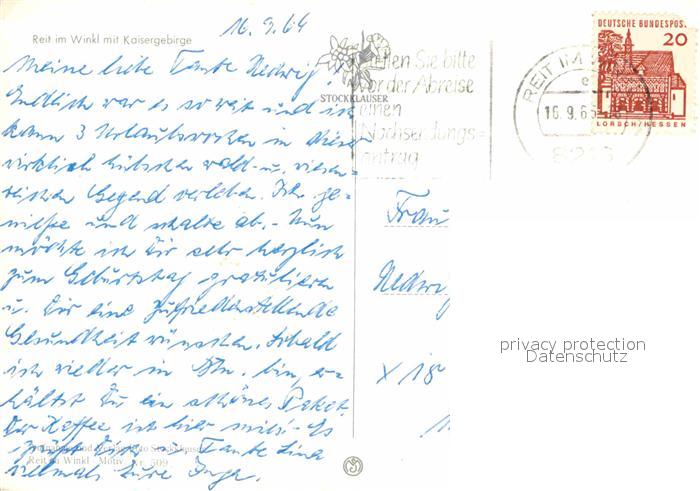 16.9.64
Reit im Winkl mit Kaisergebirge
Meine liebe Tante Hedwig!
Endlich war es so weit und ich
kann 3 Urlaubswochen in dieser
wirklich hübschen wald- u. wiesen-
reichen Gegend verleben. Ich ge-
nieße und schalte ab. - Nun
möchte ich Dir sehr herzlich
zum Geburtstag gratulieren
u. Dir eine zufriedenstellende
Gesundheit wünschen. Sobald
ich wieder in bin, er-
hältst Du ein schönes Paket.
Der Kaffee ist hier Es
grüßt Dich Tante Lina
vielmals Eure Inge.
Verlag Stockklauser
Reit im Winkl Motiv Nr. 509
STOCKKLAUSER
Sie bitte
vor der Abreise
einen
Nachsendungs=
antrag
REIT IM
16.9.65
8216
DEUTSCHE BUNDESPOST
20
LORSCH/HESSEN
Frau
Hedwig
X 18
privacy protection
Datenschutz